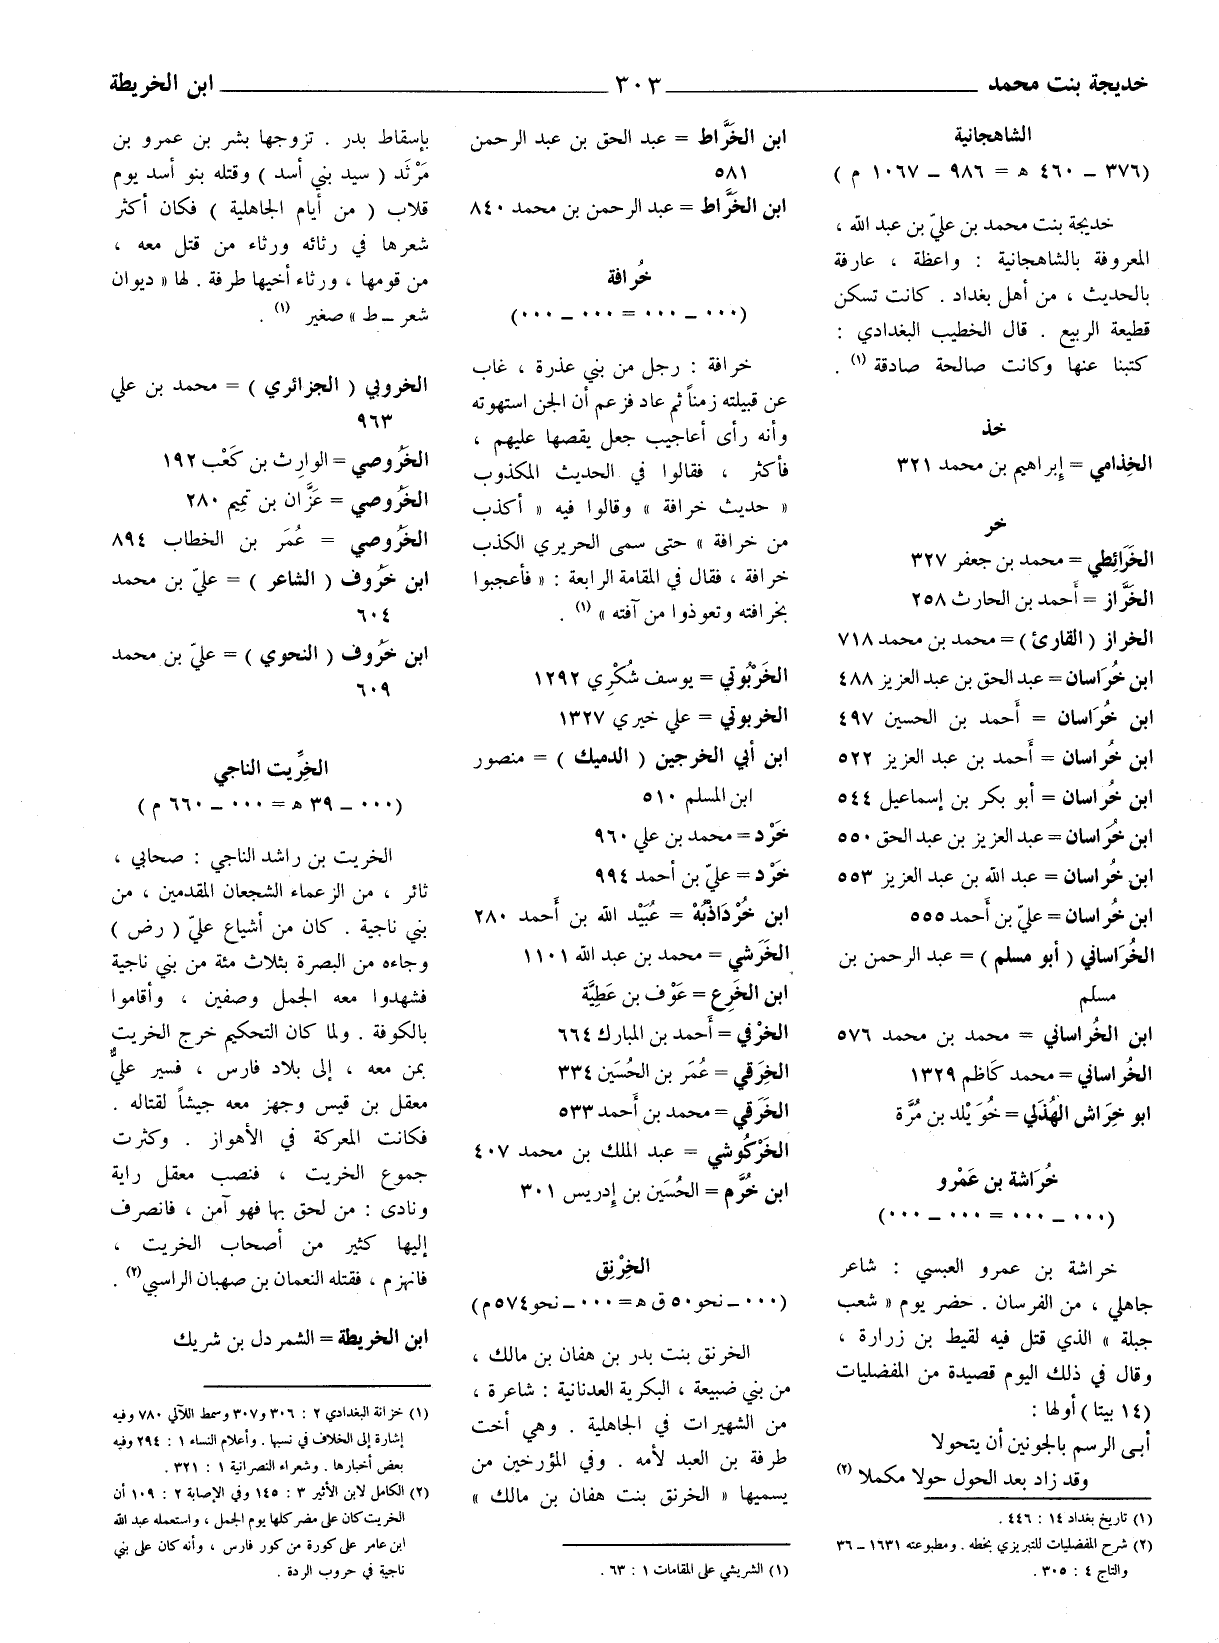 خديجة بنت محمد ــــــ ٣٠٣ ــــــ ابن الخريطة
الشاهجانية
(٣٧٦ – ٤٦٠ ه = ٩٨٦ – ١٠٦٧ م )
خديجة بنت محمد بن عليّ بن عبد الله ،
المعروفة بالشاهجانية : واعظة ، عارفة
بالحديث ، من أهل بغداد . كانت تسكن
قطيعة الربيع . قال الخطيب البغدادي :
كتبنا عنها وكانت صالحة صادقة (١) .
خذ
الخِذامي = إبراهيم بن محمد ٣٢١
خر
الخَرَائِطي = محمد بن جعفر ٣٢٧
الخَرَّاز = أَحمد بن الحارث ٢٥٨
الخراز ( القارئ ) = محمد بن محمد ٧١٨
ابن خُرَاسان = عبد الحق بن عبد العزيز ٤٨٨
ابن خُرَاسان = أَحمد بن الحسين ٤٩٧
ابن خُراسان = أَحمد بن عبد العزيز ٥٢٢
ابن خُراسان = أبو بكر بن إسماعيل ٥٤٤
ابن خُرَاسان = عبد العزيز بن عبد الحق ٥٥٠
ابن خُراسان = عبد الله بن عبد العزيز ٥٥٣
ابن خُراسان = عليّ بن أَحمد ٥٥٥
الخُرَاساني ( أبو مسلم ) = عبد الرحمن بن
مسلم
ابن الخُراساني = محمد بن محمد ٥٧٦
الخُراساني = محمد كاظم ١٣٢٩
ابو خِرَاش الهُذَلي = خُوَيْلد بن مُرَّة
خُرَاشة بن عَمْرو
(٠٠٠ – ٠٠٠ = ٠٠٠ – ٠٠٠)
خراشة بن عمرو العبسي : شاعر
جاهلي ، من الفرسان . حضر يوم « شعب
جبلة » الذي قتل فيه لقيط بن زرارة ،
وقال في ذلك اليوم قصيدة من المفضليات
(١٤ بيتا) أولها :
أبى الرسم بالجونين أن يتحولا
وقد زاد بعد الحول حولا مكملا (٢)
(١) تاريخ بغداد ١٤ : ٤٤٦ .
(٢) شرح المفضليات للتبريزي بخطه . ومطبوعته ١٦٣١ – ٣٦
والتاج ٤ : ٣٠٥ .
ابن الخَرَّاط = عبد الحق بن عبد الرحمن
٥٨١
ابن الخَرَّاط = عبد الرحمن بن محمد ٨٤٠
خُرافة
(٠٠٠ – ٠٠٠ = ٠٠٠ – ٠٠٠)
خرافة : رجل من بني عذرة ، غاب
عن قبيلته زمناً ثم عاد فزعم أن الجن استهوته
وأنه رأى أعاجيب جعل يقصها عليهم ،
فأكثر ، فقالوا في الحديث المكذوب
« حديث خرافة » وقالوا فيه « أكذب
من خرافة » حتى سمى الحريري الكذب
خرافة ، فقال في المقامة الرابعة : « فأعجبوا
بخرافته وتعوذوا من آفته » (١) .
الخَرْبُوتي = يوسف شُكْرِي ١٢٩٢
الخربوتي = علي خيري ١٣٢٧
ابن أبي الخرجين ( الدميك ) = منصور
ابن المسلم ٥١٠
خَرْد = محمد بن علي ٩٦٠
خَرْد = عليّ بن أحمد ٩٩٤
ابن خُرْدَاذْبُهْ = عُبَيْد الله بن أَحمد ٢٨٠
الخَرَشي = محمد بن عبد الله ١١٠١
ابن الخَرِع = عَوْف بن عَطِيَّة
الخرْفي = أَحمد بن المبارك ٦٦٤
الخِرَقي = عُمَر بن الحُسَين ٣٣٤
الخَرَقي = محمد بن أَحمد ٥٣٣
الخَرْكُوشي = عبد الملك بن محمد ٤٠٧
ابن خُرَّم = الحُسَين بن إدريس ٣٠١
الخِرْنِق
(٠٠٠ – نحو ٥٠ ق ه = ٠٠٠ – نحو ٥٧٤ م)
الخرنق بنت بدر بن هفان بن مالك ،
من بني ضبيعة ، البكرية العدنانية : شاعرة ،
من الشهيرات في الجاهلية . وهي أخت
طرفة بن العبد لأمه . وفي المؤرخين من
يسميها « الخرنق بنت هفان بن مالك »
(١) الشريشي على المقامات ١ : ٦٣ .
بإسقاط بدر . تزوجها بشر بن عمرو بن
مَرْثَد ( سيد بني أسد ) وقتله بنو أسد يوم
قلاب ( من أيام الجاهلية ) فكان أكثر
شعرها في رثائه ورثاء من قتل معه ،
من قومها ، ورثاء أخيها طرفة . لها « ديوان
شعر – ط » صغير (١) .
الخروبي ( الجزائري ) = محمد بن علي
٩٦٣
الخَرُوصي = الوارِث بن كَعْب ١٩٢
الخَرُوصي = عَزَّان بن تَمِيم ٢٨٠
الخَرُوصي = عُمَر بن الخطاب ٨٩٤
ابن خَرُوف ( الشاعر ) = عليّ بن محمد
٦٠٤
ابن خَرُوف ( النحوي ) = عليّ بن محمد
٦٠٩
الخِرِّيت الناجي
(٠٠٠ – ٣٩ ه = ٠٠٠ – ٦٦٠ م )
الخريت بن راشد الناجي : صحابي ،
ثائر ، من الزعماء الشجعان المقدمين ، من
بني ناجية . كان من أشياع عليّ ( رض )
وجاءه من البصرة بثلاث مئة من بني ناجية
فشهدوا معه الجمل وصفين ، وأقاموا
بالكوفة . ولما كان التحكيم خرج الخريت
بمن معه ، إلى بلاد فارس ، فسير عليٌّ
معقل بن قيس وجهز معه جيشاً لقتاله .
فكانت المعركة في الأهواز . وكثرت
جموع الخريت ، فنصب معقل راية
ونادى : من لحق بها فهو آمن ، فانصرف
إليها كثير من أصحاب الخريت ،
فانهزم ، فقتله النعمان بن صهبان الراسبي (٢) .
ابن الخريطة = الشمردل بن شريك
(١) خزانة البغدادي ٢ : ٣٠٦ و٣٠٧ وسمط اللآلي ٧٨٠ وفيه
إشارة إلى الخلاف في نسبها . وأعلام النساء ١ : ٢٩٤ وفيه
بعض أخبارها . وشعراء النصرانية ١ : ٣٢١ .
(٢) الكامل لابن الأثير ٣ : ١٤٥ وفي الإصابة ٢ : ١٠٩ أن
الخريت كان على مضر كلها يوم الجمل ، واستعمله عبد الله
ابن عامر على كورة من كور فارس ، وأنه كان على بني
ناجية في حروب الردة .